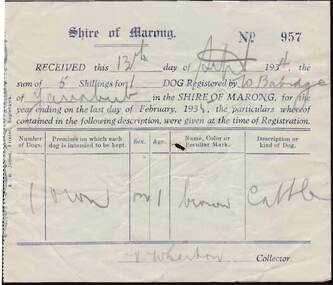 Shire of Marong.
No 957
RECEIVED this 13th day of Sept 1934 the
sum of 5 Shillings for 1 DOG Registered by
of in the SHIRE OF MARONG, for the
year ending on the last day of February, 1935, the particulars whereof
contained in the following description, were given at the time of Registration.
Number of Dogs. Premises on which each dog is intended to be kept. Sex. Age. Name, Color or Peculiar Mark. Description or kind of Dog.
1 own m 1 brown Cattle
Collector.